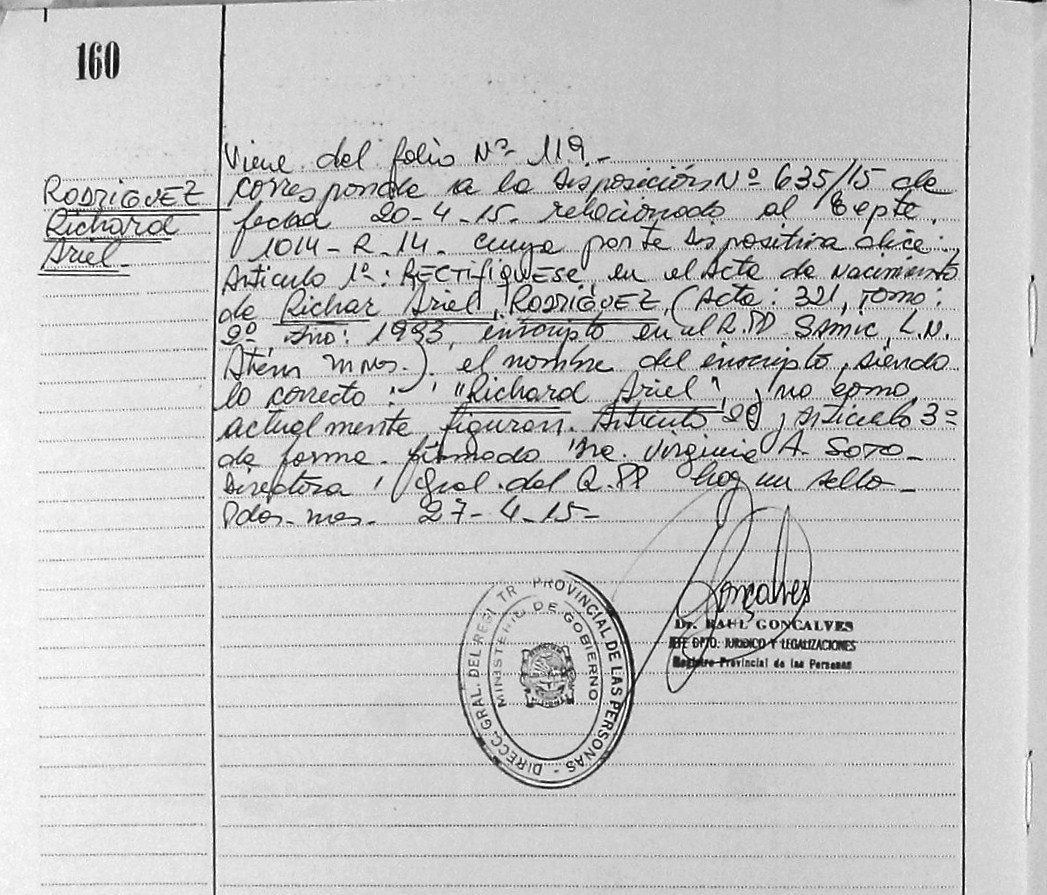 160
RODRIGUEZ
Richard
Ariel-
Viene del folio Nº 119.-
corresponde a la disposición Nº 635/15 de
fecha 20-4-15- relacionado al Expte.
1014-R-14- cuya parte dispositiva dice:
Articulo 1º: RECTIFIQUESE en el Acta de Nacimiento
de Richar Ariel RODRIGUEZ (Acta: 321, Tomo:
2º Año: 1993, inscripto en el R.PP SAMIC L.N.
Alem Mnes.) el nombre del inscripto, siendo
lo correcto: "Richard Ariel", no como
actualmente figuran. Articulo 2º, Articulo 3º
de forma. firmado Dra. Virginia A. SOTO-
Directora Gral. del R.PP hay un sello-
Pdas. Mnes. 27-4-15-
Gonçalves
Dr. RAUL GONCALVES
JEFE DPTO. JURIDICO Y LEGALIZACIONES
Registro Provincial de las Personas
DIRECC. GRAL. DEL REGISTR PROVINCIAL DE LAS PERSONAS -
MINISTERIO DE GOBIERNO